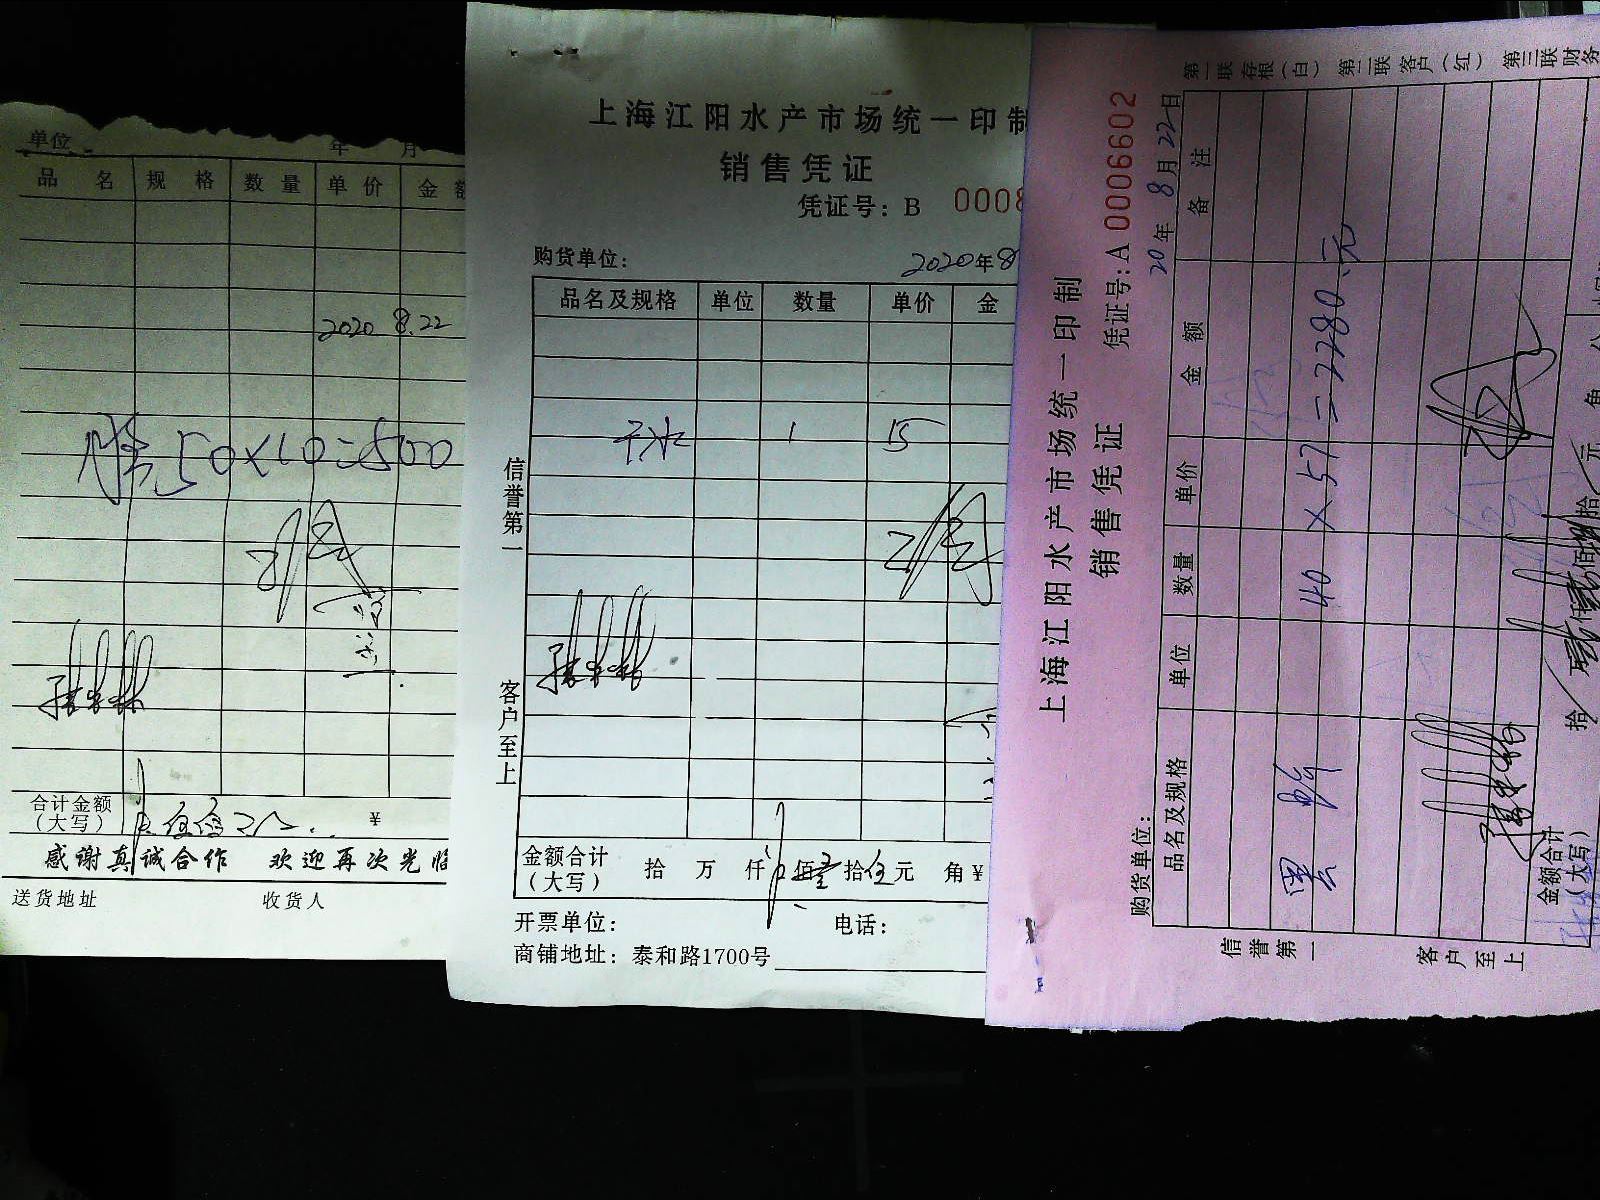 单位 年 月
品名 规格 数量 单价 金额
2020 8.22
50×10=500
合计金额（大写） ¥
感谢真诚合作 欢迎再次光临
送货地址 收货人
上海江阳水产市场统一印制
销售凭证
凭证号：B 0008
购货单位： 2020年8
品名及规格 单位 数量 单价 金
干冰 1 15
信誉第一
客户至上
金额合计（大写） 拾 万 仟 佰 壹拾伍元 角 ¥
开票单位： 电话：
商铺地址：泰和路1700号
上海江阳水产市场统一印制
销售凭证
凭证号：A 0006602
购货单位： 20年8月22日
品名及规格 单位 数量 单价 金额 备注
黑 40×57=2280.元
金额合计（大写） 拾 仟 佰 拾 元 角 分
信誉第一
客户至上
第一联存根（白） 第二联客户（红） 第三联财务